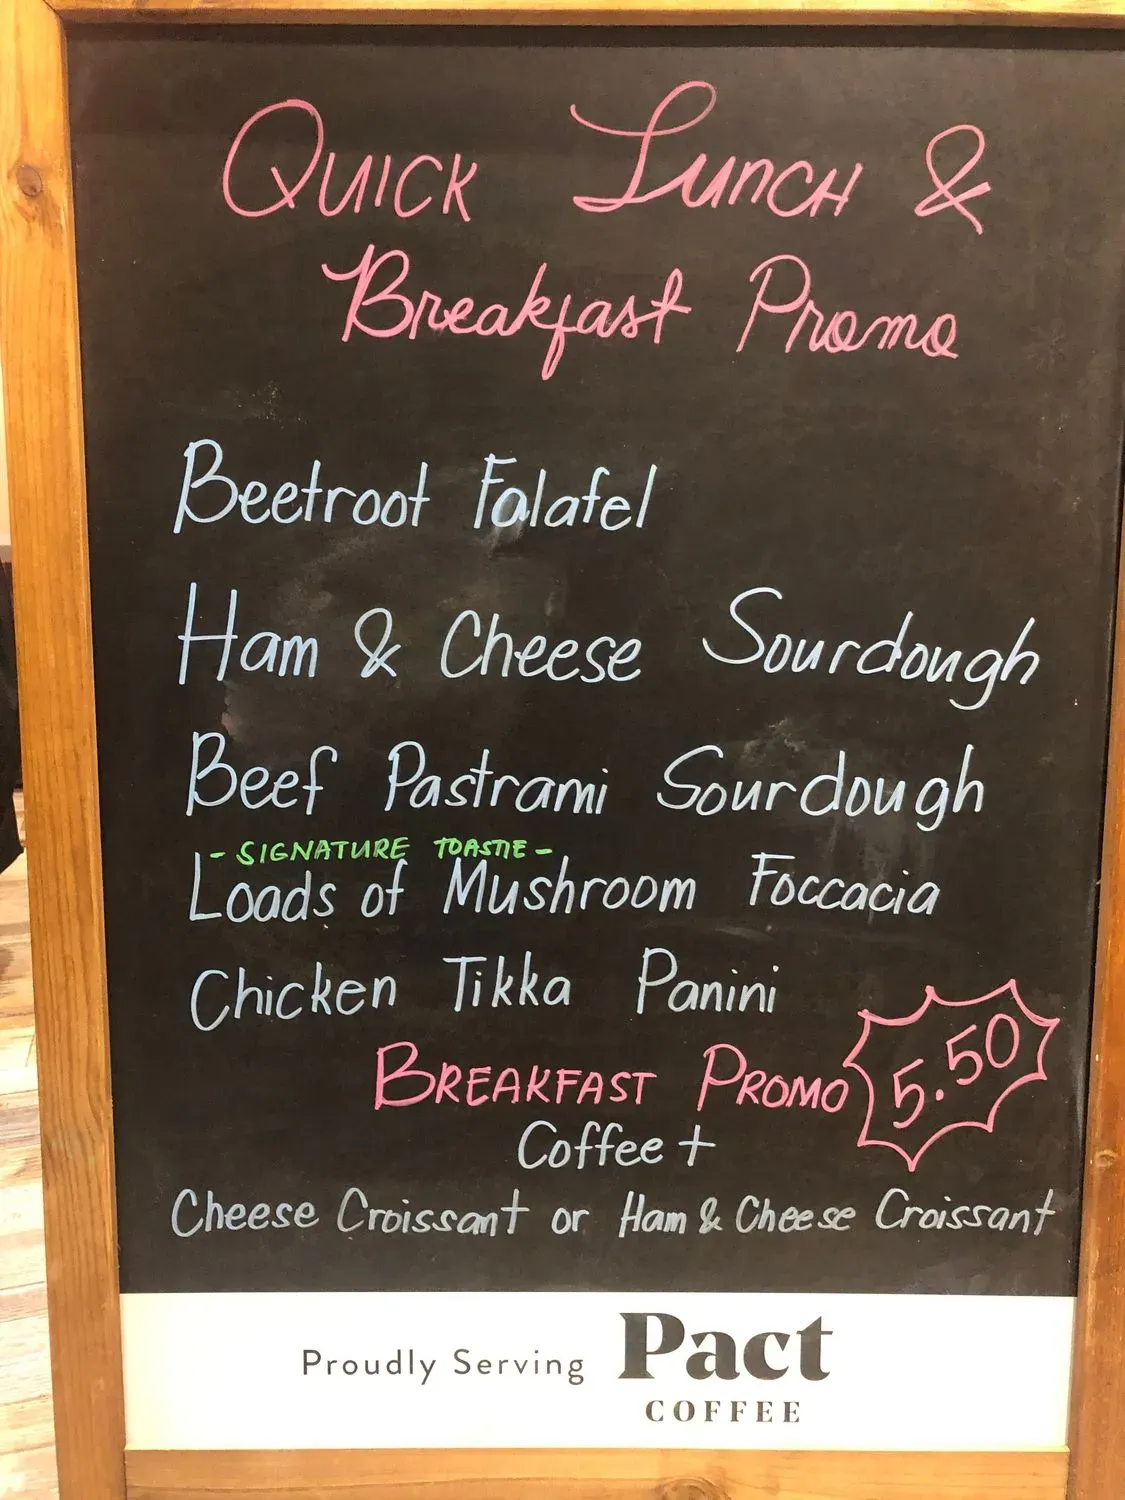 QUICK LUNCH &
Breakfast Promo
Beetroot Falafel
Ham & Cheese Sourdough
Beef Pastrami Sourdough
- SIGNATURE TOASTIE -
Loads of Mushroom Foccacia
Chicken Tikka Panini
BREAKFAST PROMO 5.50
Coffee +
Cheese Croissant or Ham & Cheese Croissant
Proudly Serving Pact
COFFEE